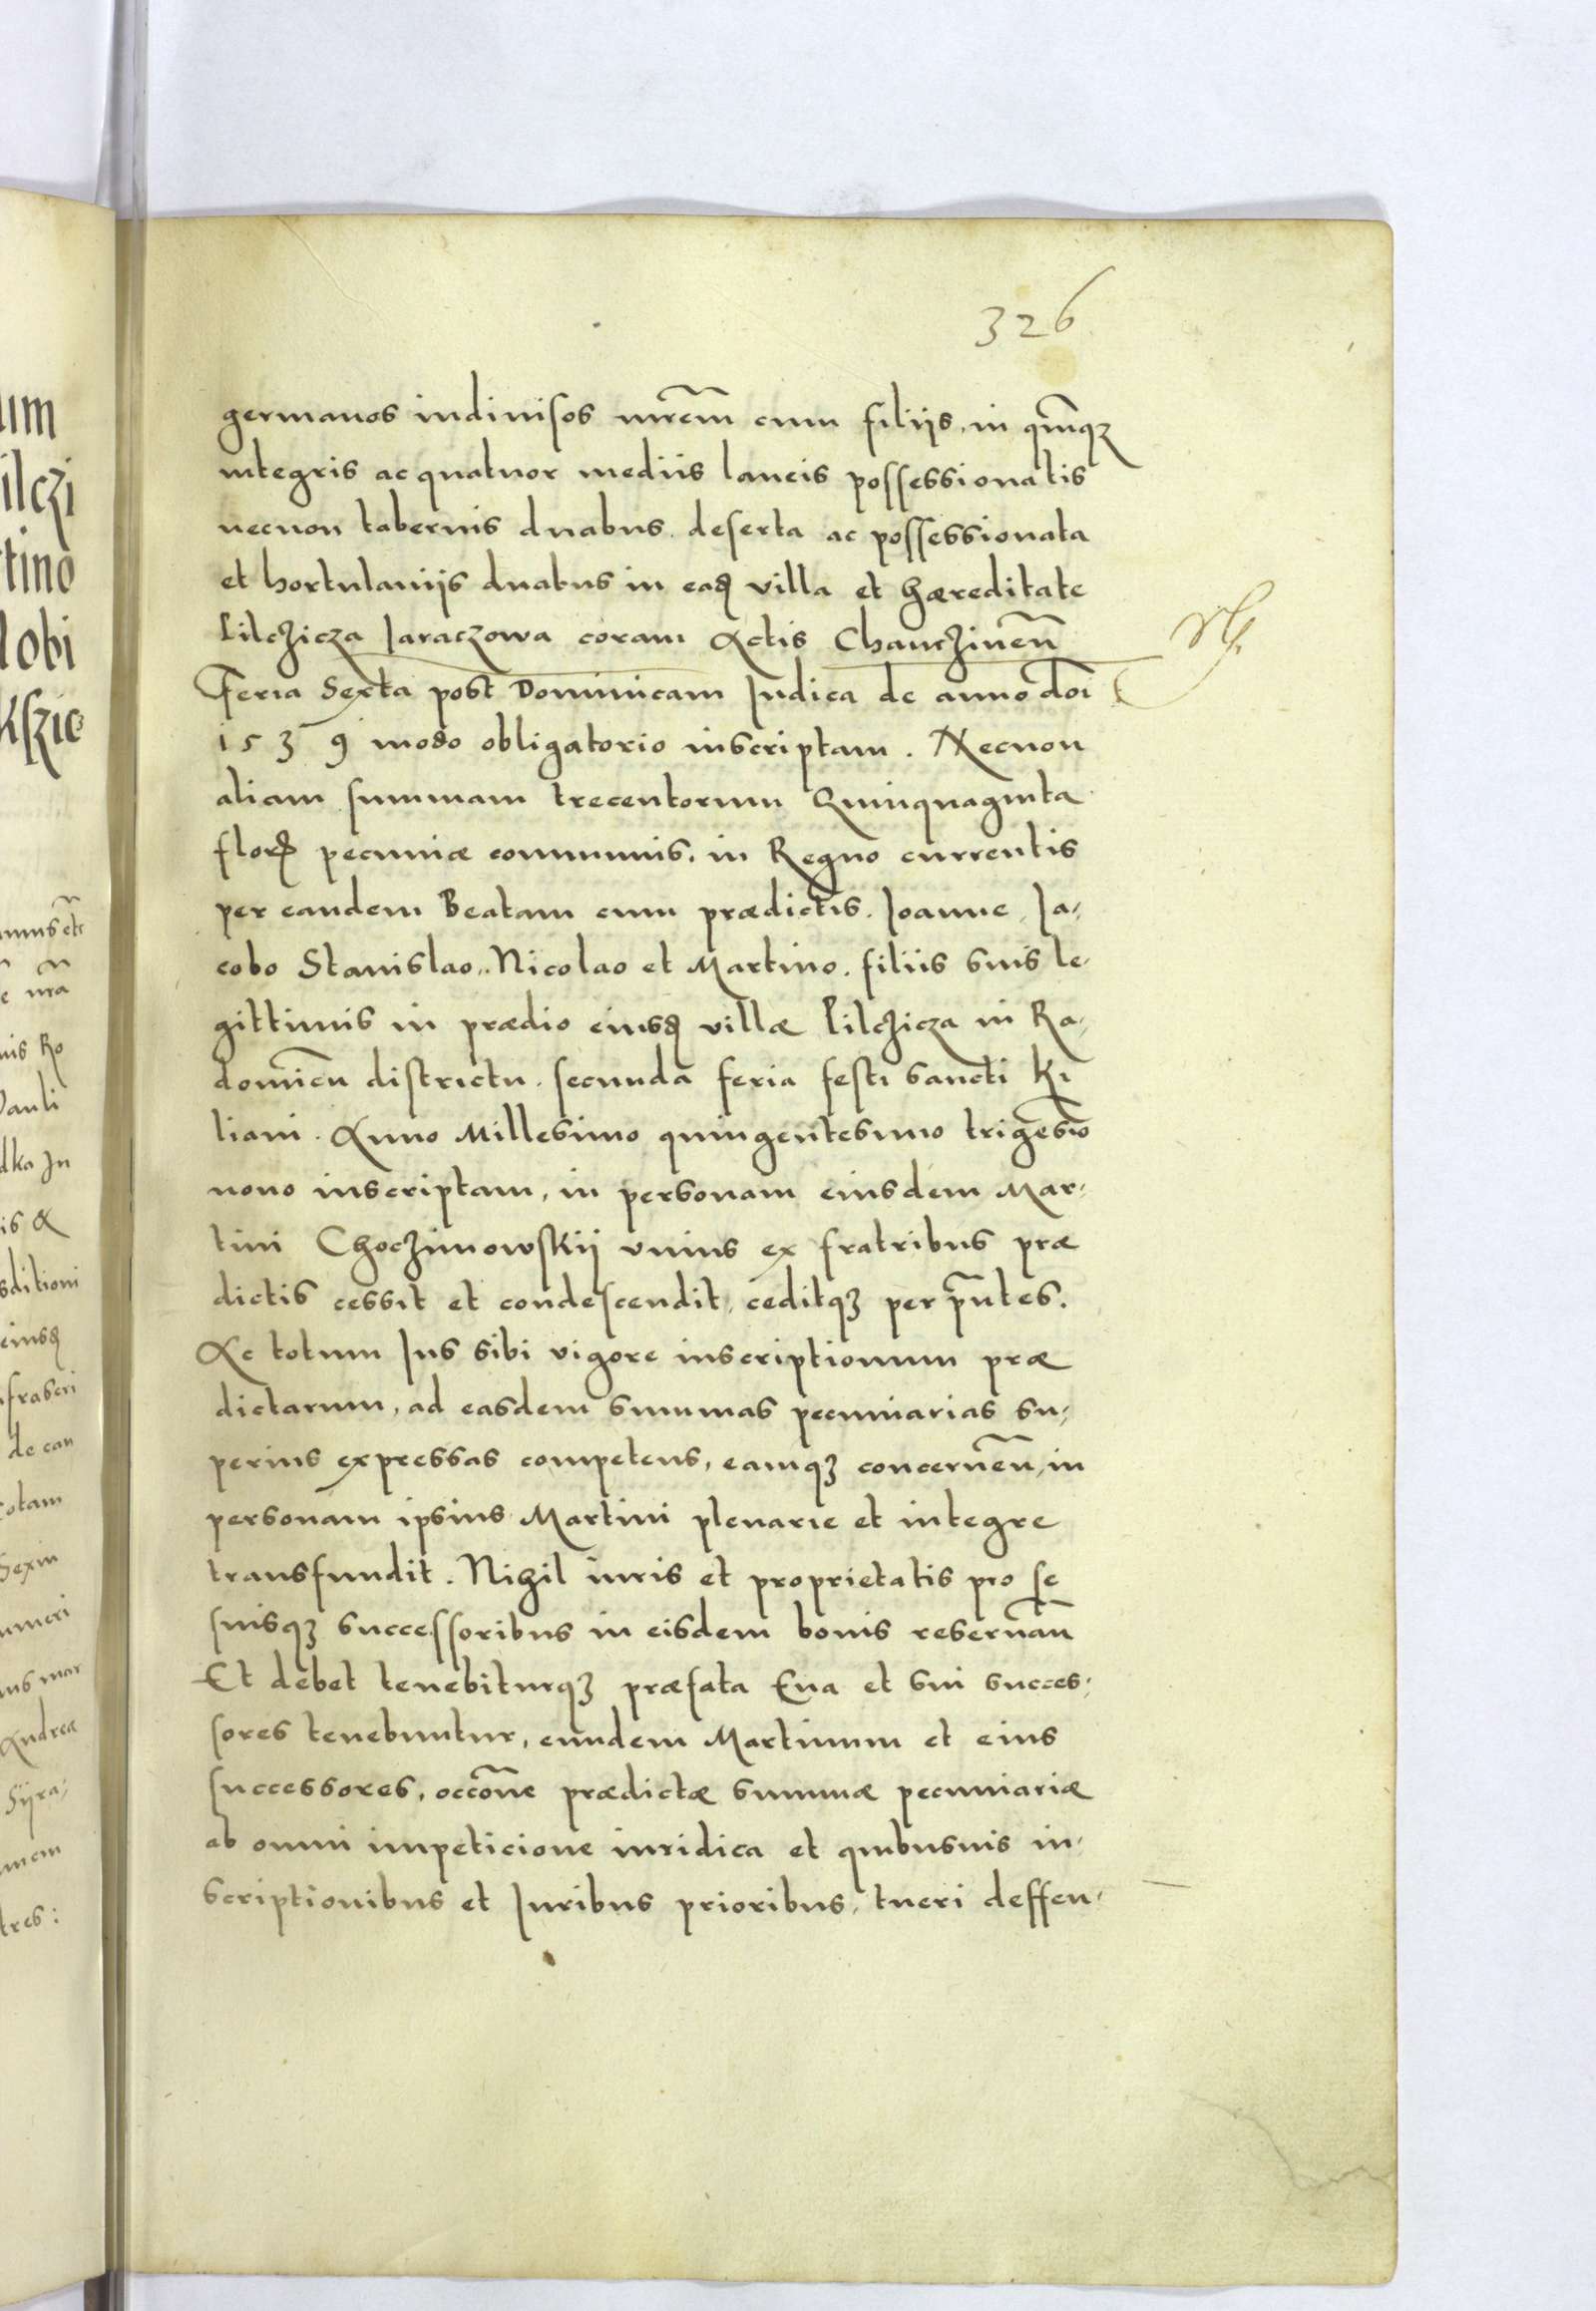 326
germanos indiuisos mr̃em cum filijs, in q̃mqꝫ
integris ac quatuor mediis laneis possessionatis
necnon tabernis duabus deserta ac possessionata
et hortulaniis duabus in eadꝫ villa et Hæreditate
Pilchicza Jaraczowa coram Actis Chanczineñ
Feria Sexta post Dominicam Judica de anno doı̃
1539 modo obligatorio inscriptam. Necnon
aliam summam trecentorum Quinquaginta
florꝫ pecuniæ communis. in Regno currentis
per eandem Beatam cum prædictis. Joanne, Ja-
cobo Stanislao, Nicolao et Martino. filiis suis le-
gittimis in prædio eiusdꝫ villæ Pilchicza in Ra-
domieñ districtu. secunda feria festi sancti Ki
liani. Anno Millesimo quingentesimo trigesı̃o
nono inscriptam, in personam eiusdem Mar-
tini Choczimowskij vnius ex fratribus præ
dictis cessit et condescendit, ceditqꝫ per p̃ntes.
Ac totum Jus sibi vigore inscriptionum præ
dictarum, ad easdem summas pecuniarias su-
perius expressas competens, eamqꝫ concerneñ, in
personam ipsius Martini plenarie et integre
transfundit. Nihil iuris et proprietatis pro se
suisqꝫ successoribus in eisdem bonis reseruañ
Et debet tenebiturqꝫ præfata Eua et sui succes-
sores tenebuntur, eundem Martinum et eius
successores, occõne prædictæ summæ pecuniariæ
ab omni impeticione iuridica et quibusuis in-
scriptionibus et Juribus prioribus, tueri deffen-